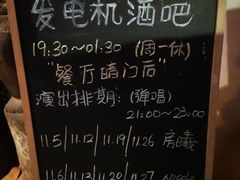 发电机酒吧
19:30~01:30 (周一休)
"餐厅暗门后"
演出排期: (弹唱)
21:00~23:00
11.5/11.12/11.19/11.26 房曦
11.6/11.13/11.20/11.27